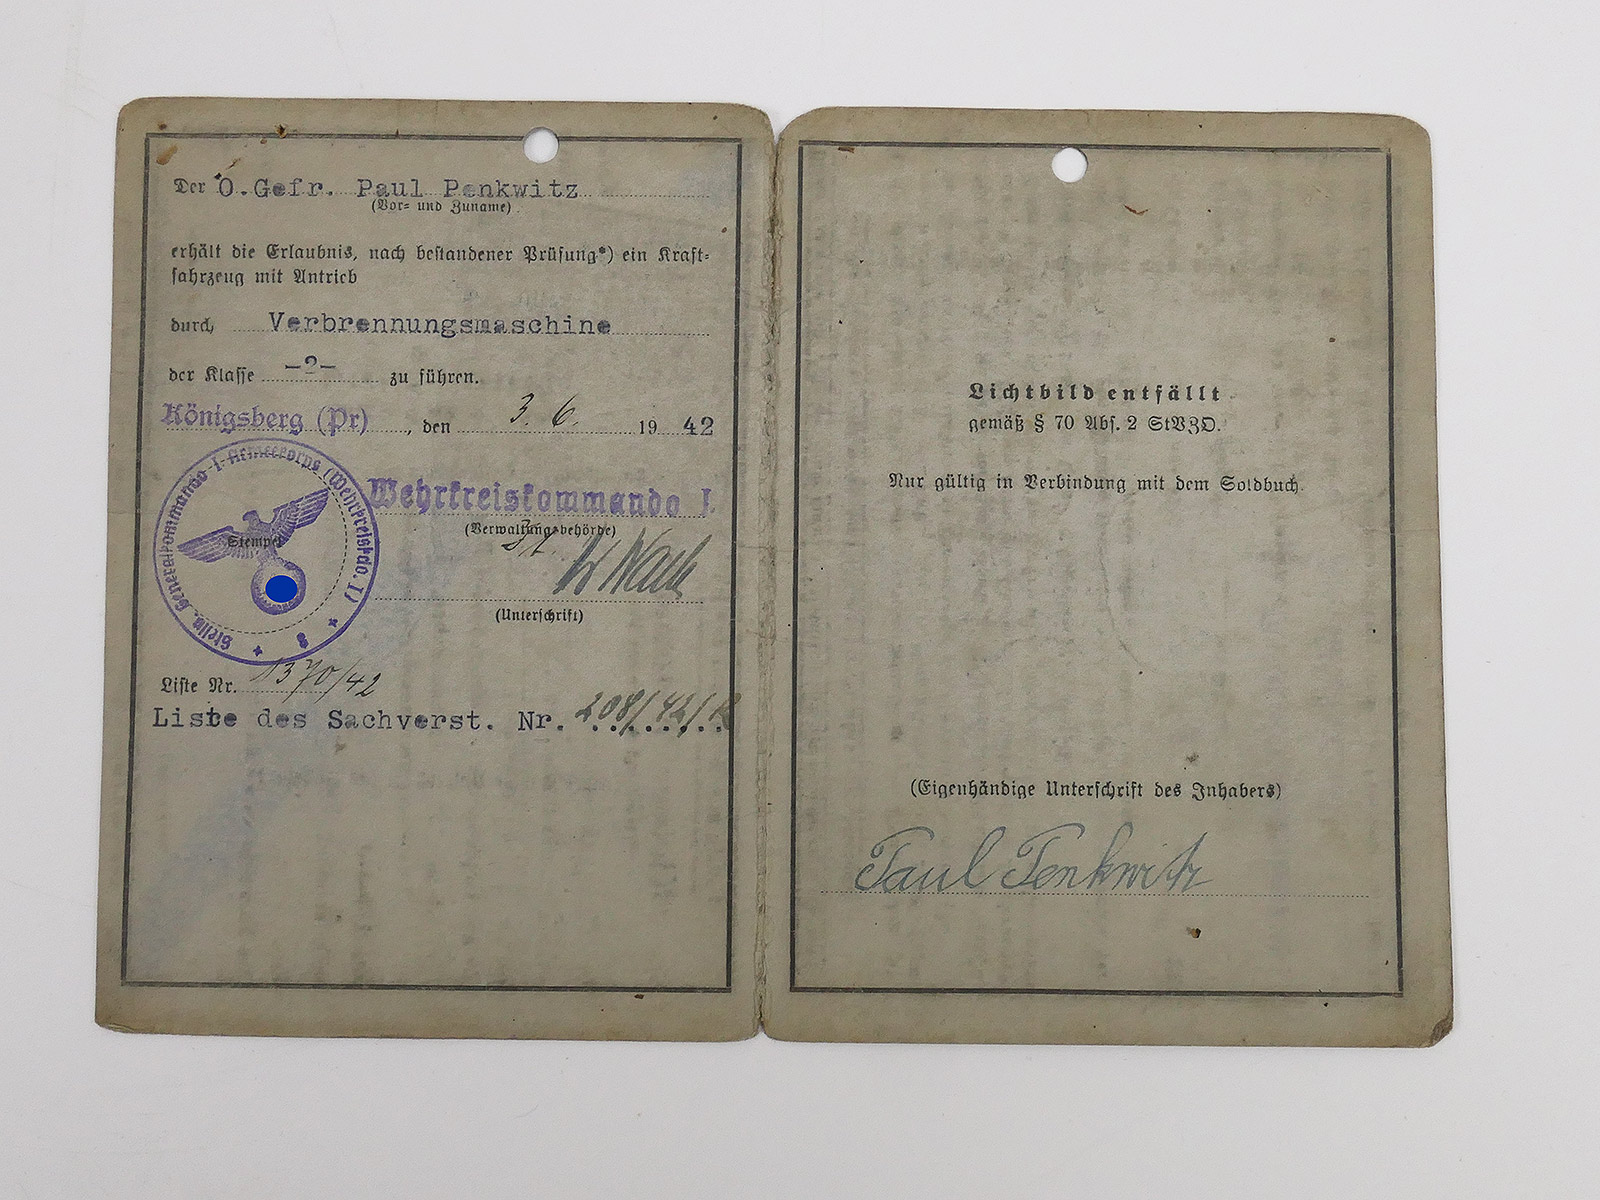 Der O.Gefr. Paul Penkwitz
(Vor= und Zuname)
erhält die Erlaubnis, nach bestandener Prüfung*) ein Kraft=
fahrzeug mit Antrieb
durch Verbrennungsmaschine
der Klasse -2- zu führen.
Königsberg (Pr), den 3. 6. 1942
Wehrkreiskommando I
(Verwaltungsbehörde)
Stempel
Stellv. Generalkommando I. Armeekorps (Wehrkreiskdo. I)
8
(Unterschrift)
Liste Nr. 1370/42
Liste des Sachverst. Nr. 208/42/
Lichtbild entfällt
gemäß § 70 Abs. 2 StVZO.
Nur gültig in Verbindung mit dem Soldbuch.
(Eigenhändige Unterschrift des Inhabers)
Paul Penkwitz